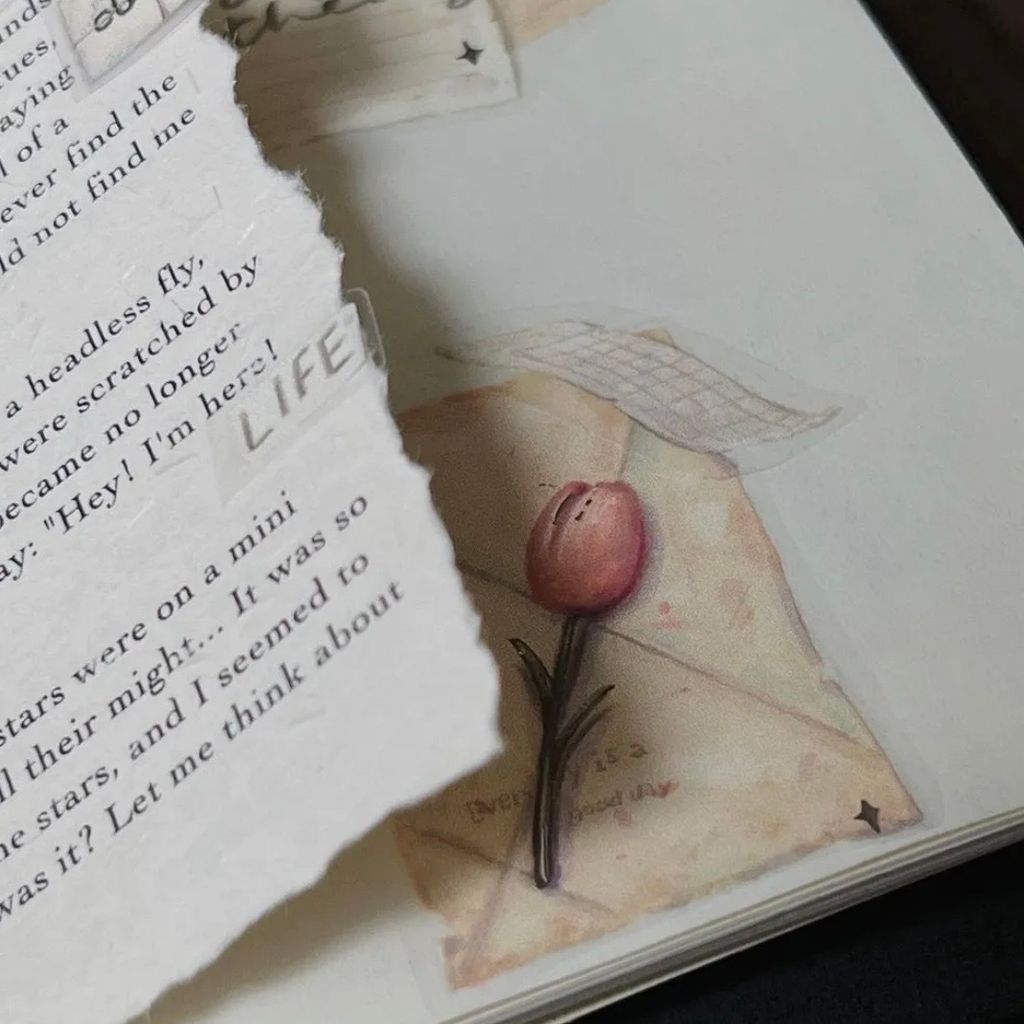 ever find the
not find me
a headless fly,
were scratched by
became no longer
"Hey! I'm here!
LIFE
stars were on a mini
their might... It was so
stars, and I seemed to
was it? Let me think about
is a
good day